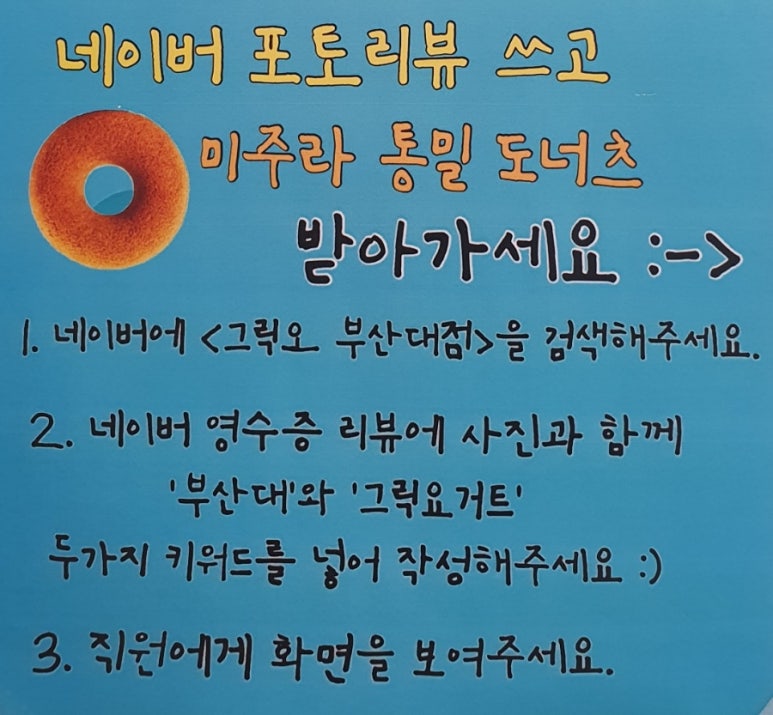 네이버 포토리뷰 쓰고
미주라 통밀 도너츠
받아가세요 :->
1. 네이버에 <그릭오 부산대점>을 검색해주세요.
2. 네이버 영수증 리뷰에 사진과 함께
'부산대'와 '그릭요거트'
두가지 키워드를 넣어 작성해주세요 :)
3. 직원에게 화면을 보여주세요.